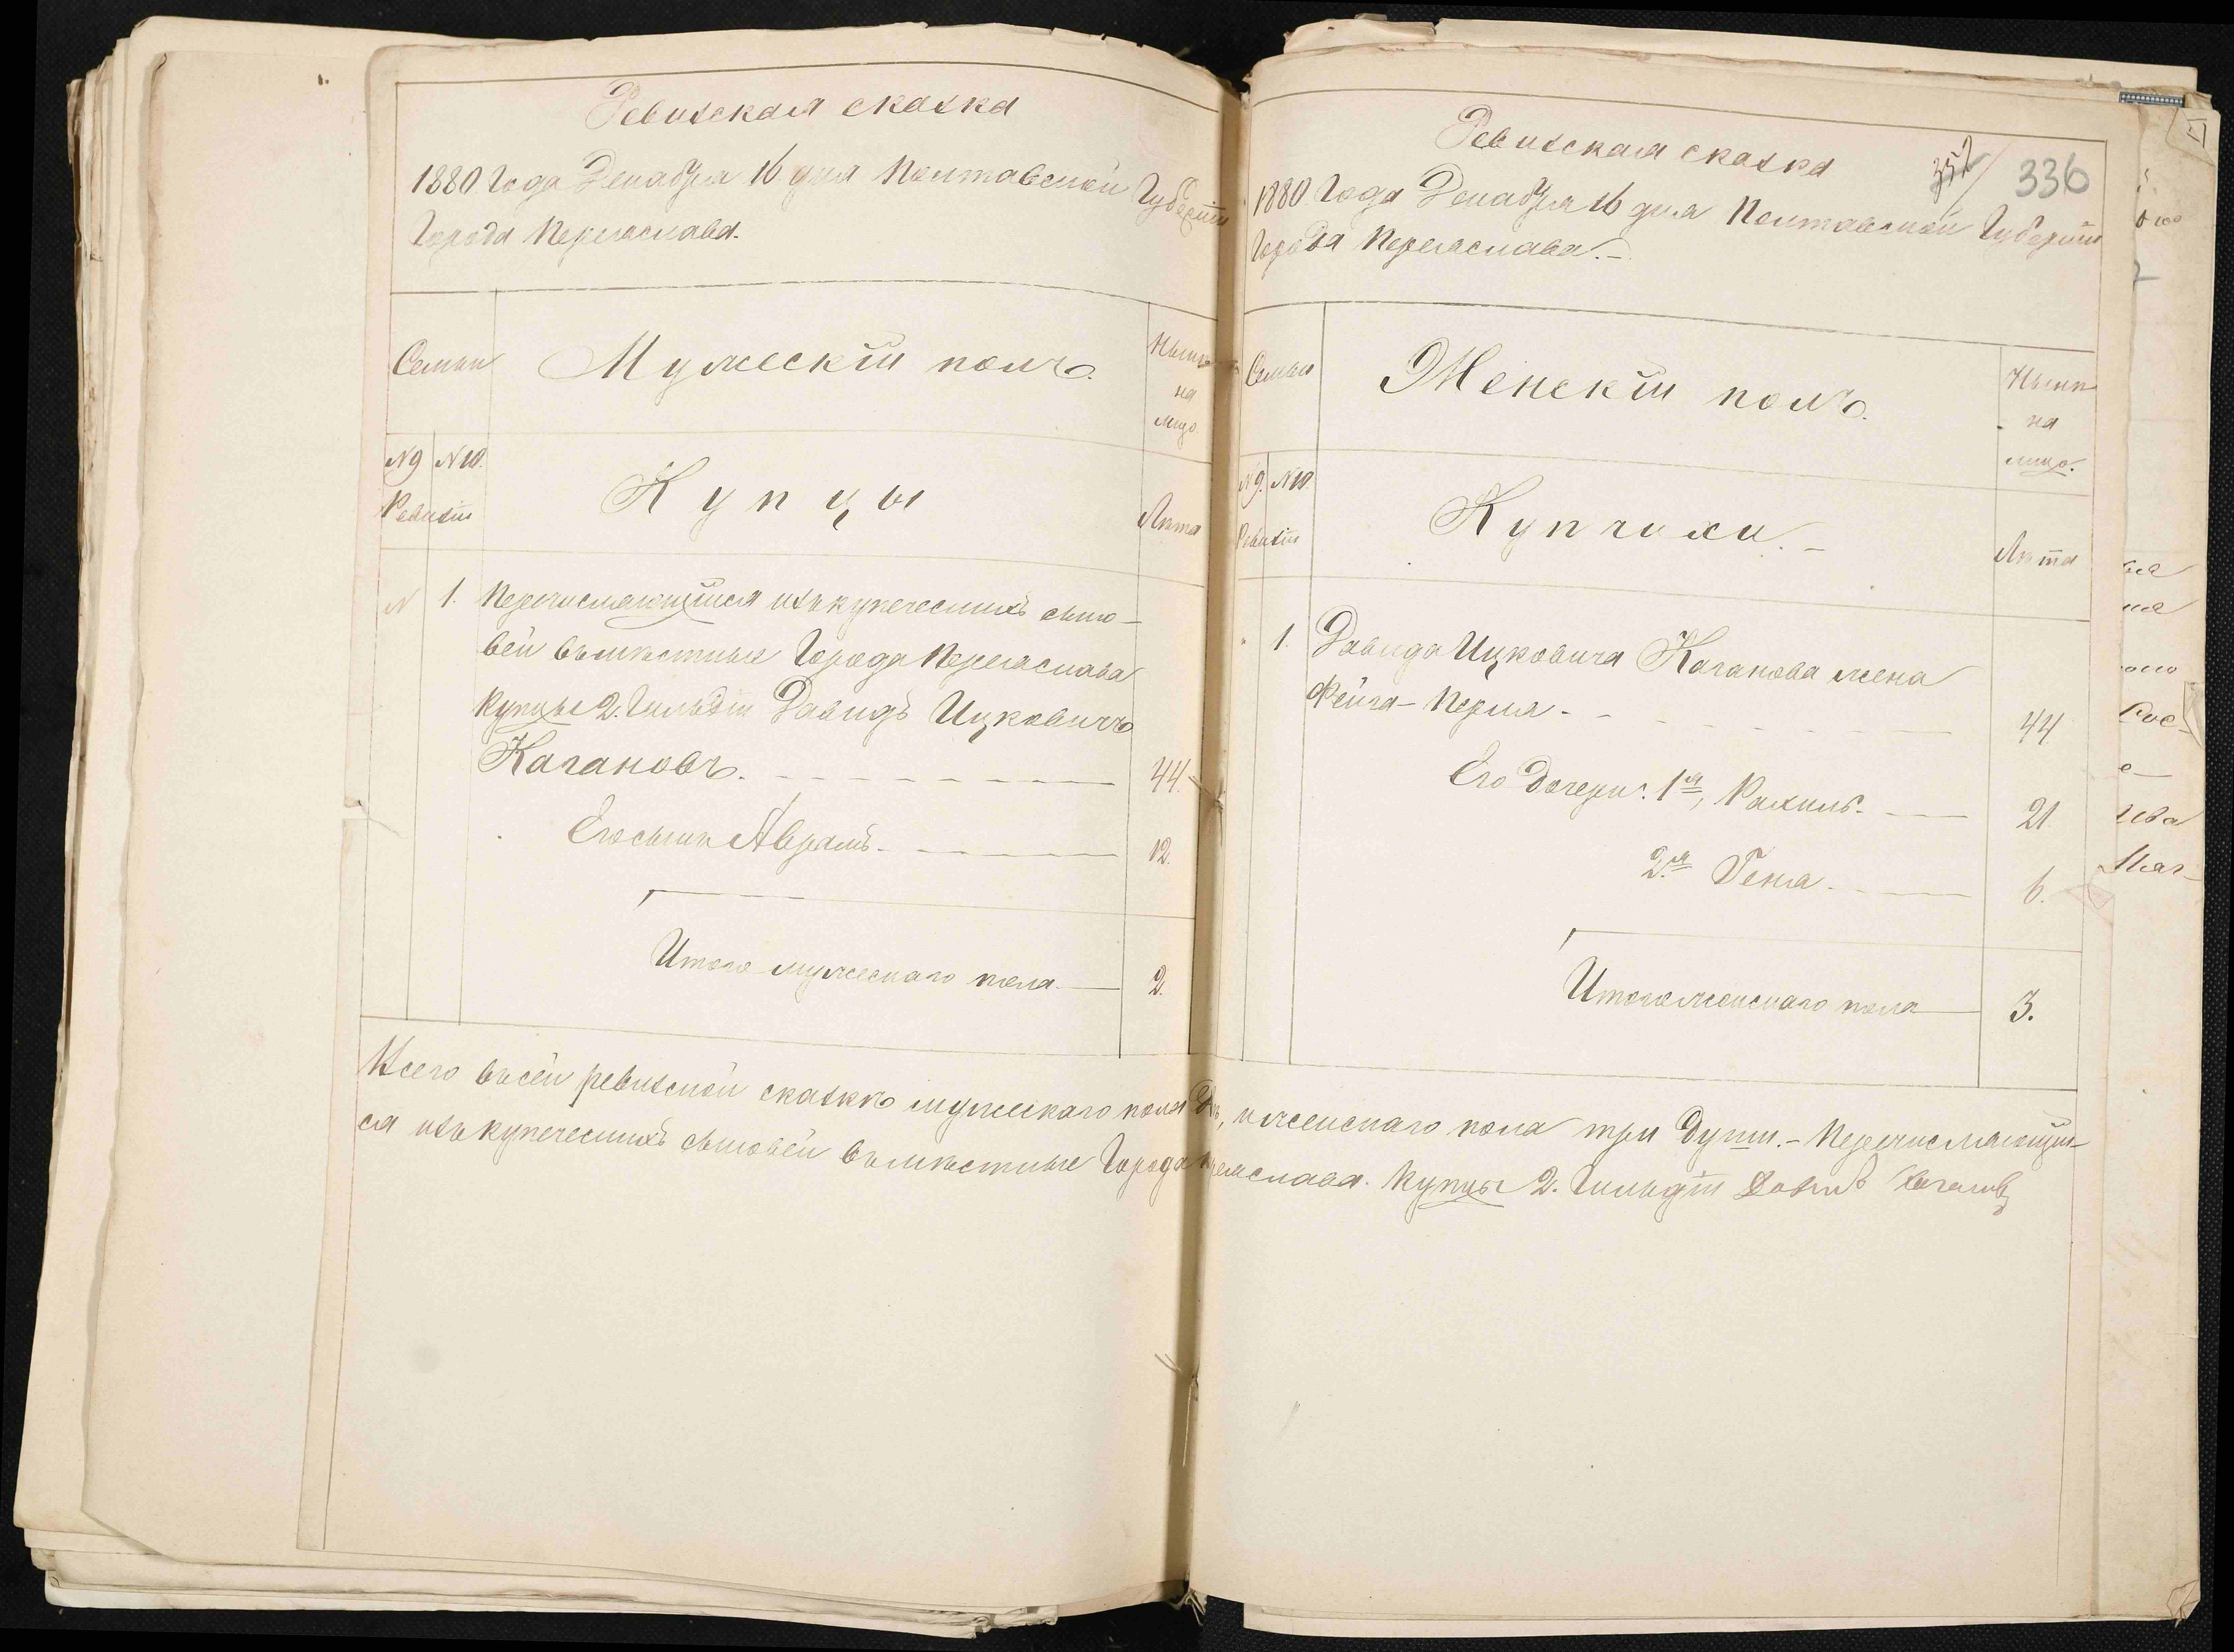 Ревизская сказка
1880 года Декабря 16 дня Полтавской Губерніи
Города Переяслава.
Семьи
Мужескій полъ.
Нынѣ
на
лицо
№ 9 № 10.
Ревизіи
Купцы
Лѣта
№ 1. Перечисляющійся изъ купеческихъ сыно-
вей въ мѣстные Города Переяслава
Купцы 2. Гильдіи Давидъ Ицковичъ
Кагановъ. 44.
Его сынъ Абрамъ 12.
Итого мужескаго пола 2.
Ревизская сказка
352
336
1880 Года Декабря 16 дня Полтавской Губерніи
Города Переяслава.
Семьи
Женскій полъ.
Нынѣ
на
лицо.
№ 9. № 10.
Ревизіи
Купчихи.
Лѣта
1. Давида Ицковича Каганова жена
Фейга-Перля 44
Его дочери: 1я, Рахиль. 21.
2я Геня 6.
Итого женскаго пола 3.
Всего въ сей ревизской сказкѣ мужескаго пола двѣ, и женскаго пола три души. Перечисляющій-
ся изъ купеческихъ сыновей въ мѣстные Города Переяслава. Купцы 2. Гильдіи Давидъ Кагановъ